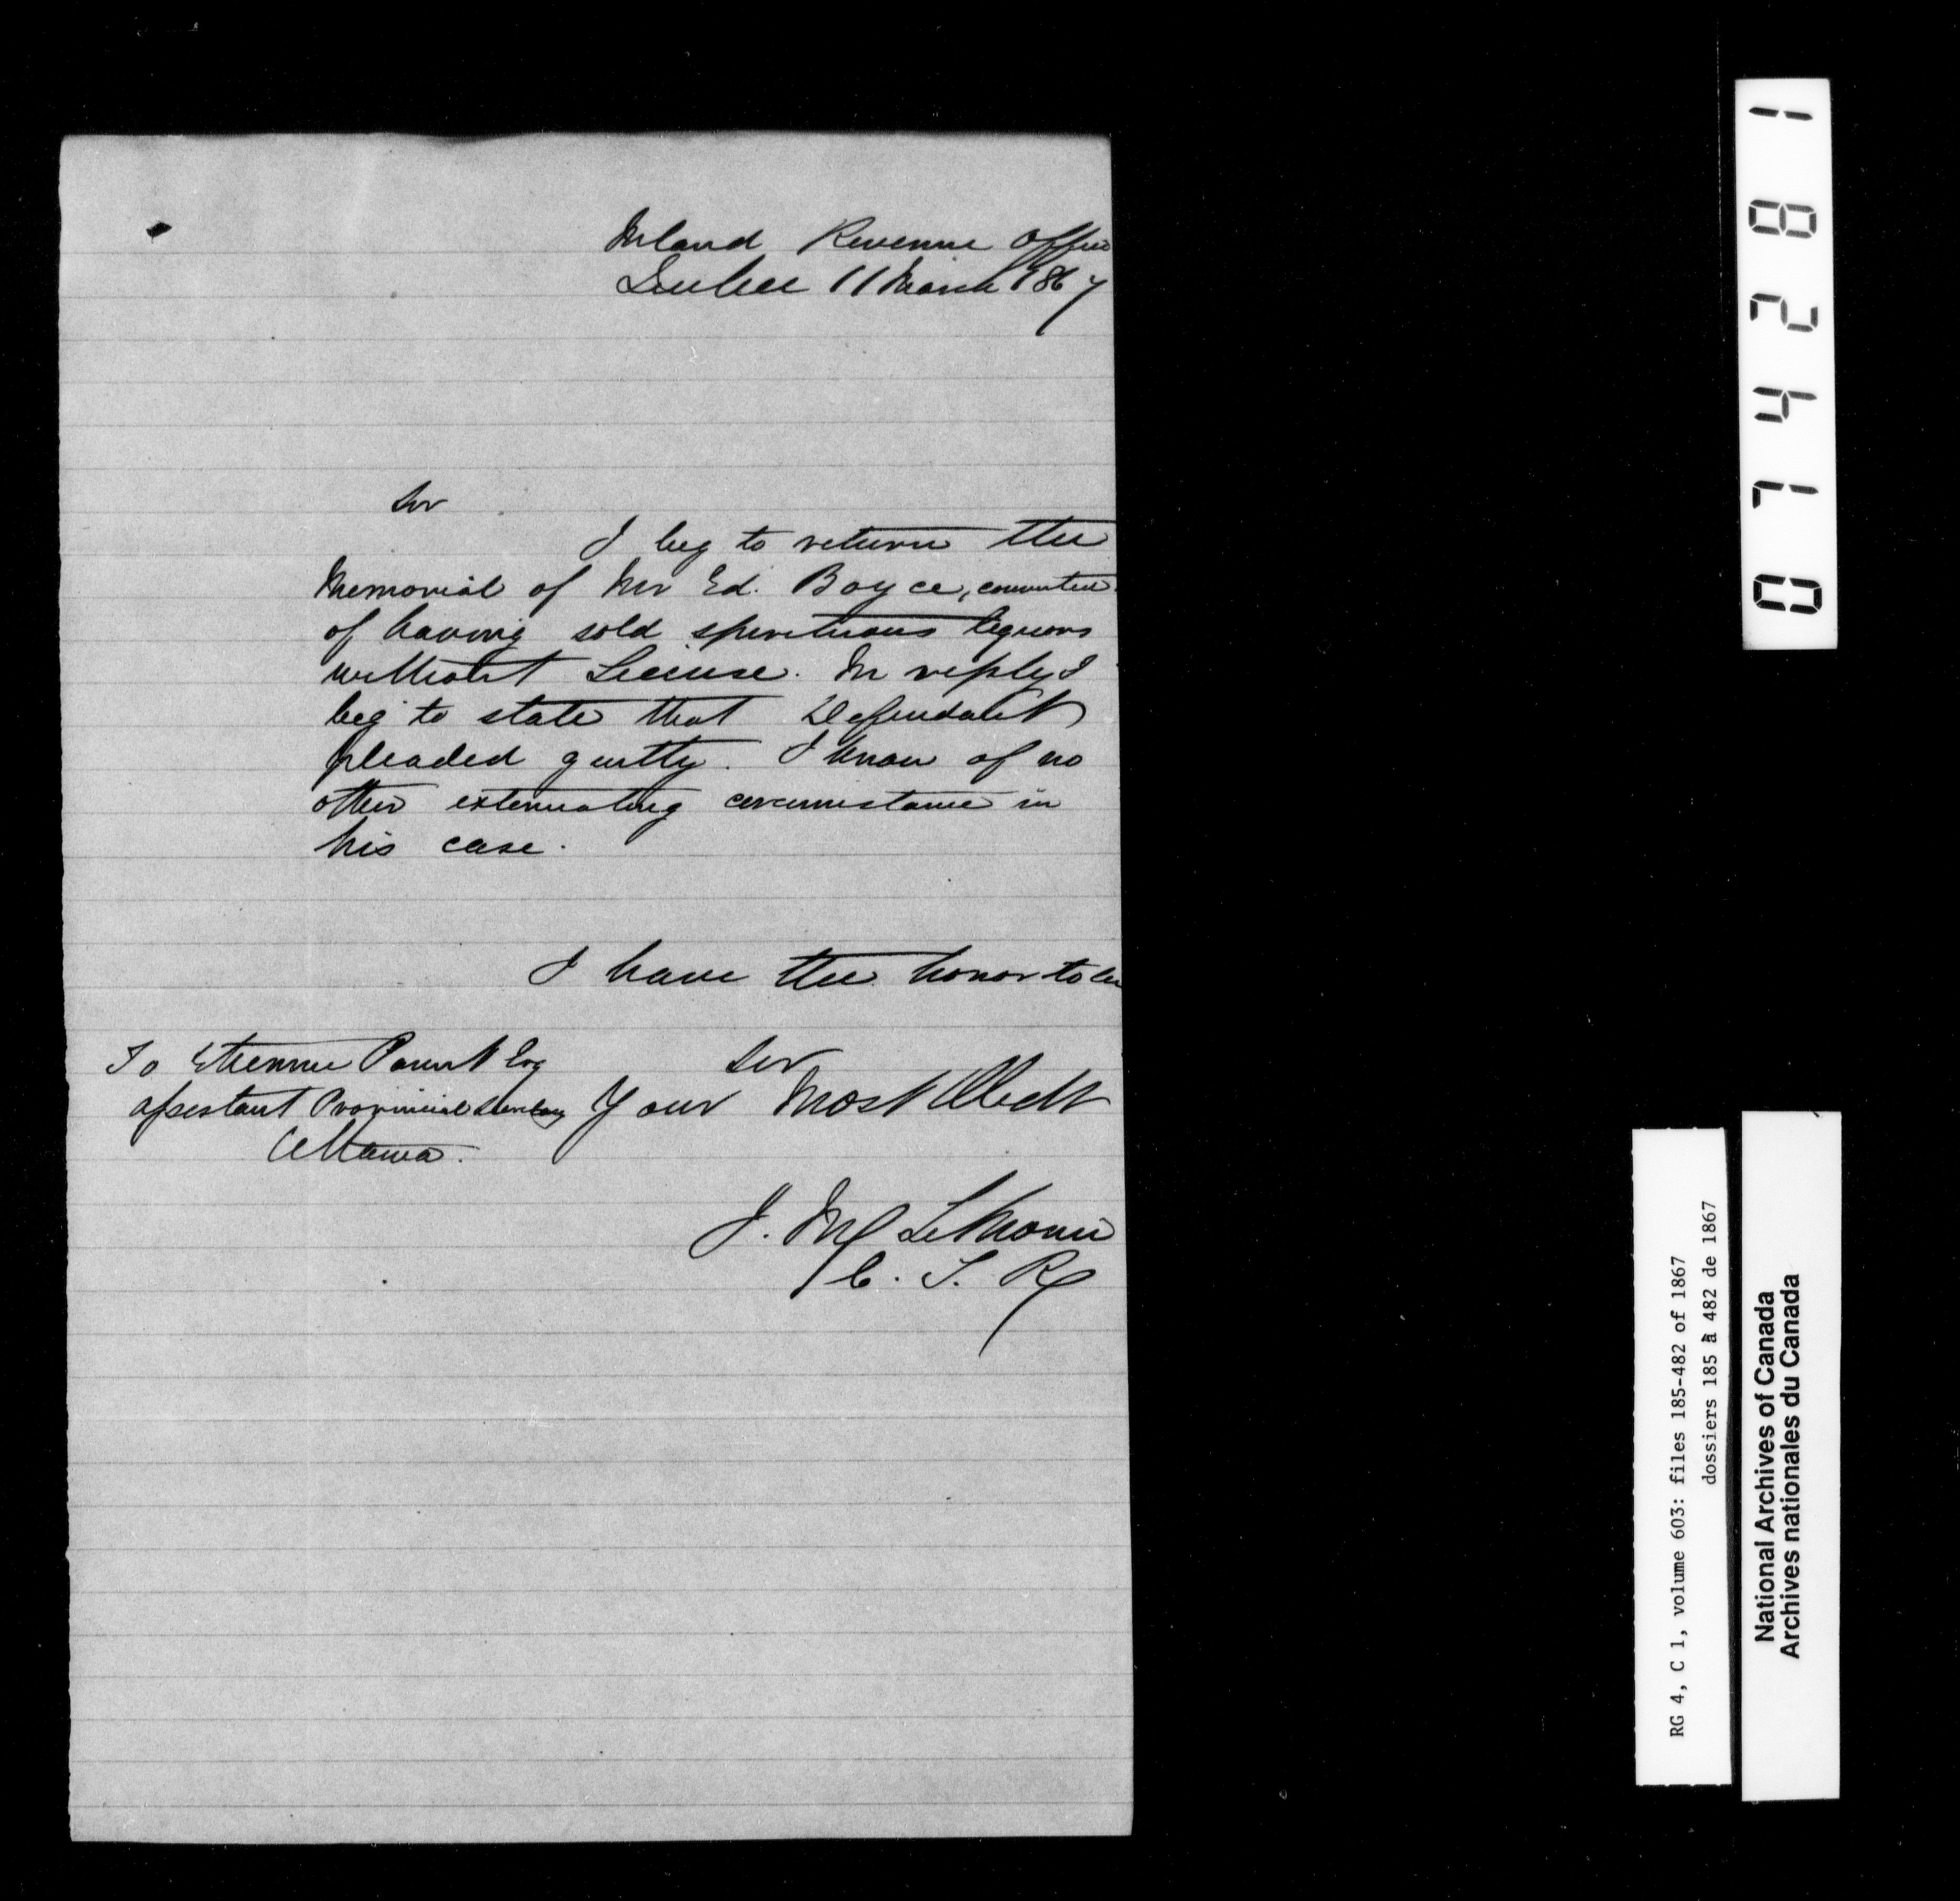 Inland Revenue Office
Quebec 11 March 1867
Sir
I beg to return the
Memorial of Mr Ed. Boyce, convicted
of having sold spirituous liquors
without License. In reply I
beg to state that Defendant
pleaded guilty. I know of no
other extenuating circumstance in
his case.
I have the honor to be
Sir
Your Most Obedt
J. M LeMoine
C. I. R
To Etienne Parent Esq
Assistant Provincial Secretary
Ottawa.
074281
RG 4, C 1, volume 603: files 185-482 of 1867
dossiers 185 à 482 de 1867
National Archives of Canada
Archives nationales du Canada